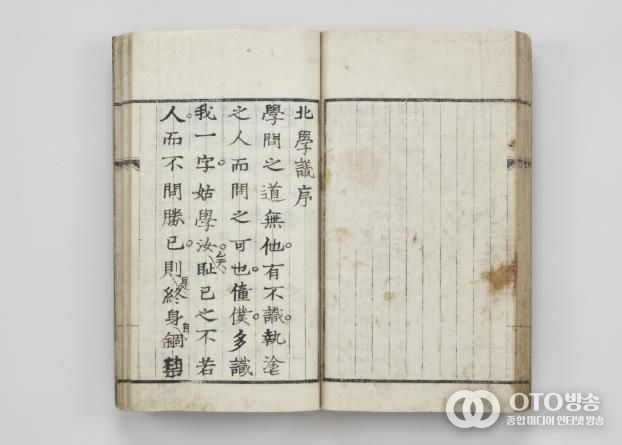 北學議序
學問之道無他。有不識。執塗
之人而問之可也。僮僕。多識
我一字。姑學汝矣。恥已之不若
人。而不問勝已。則是終身自錮
OTO방송
종합 미디어 인터넷 방송